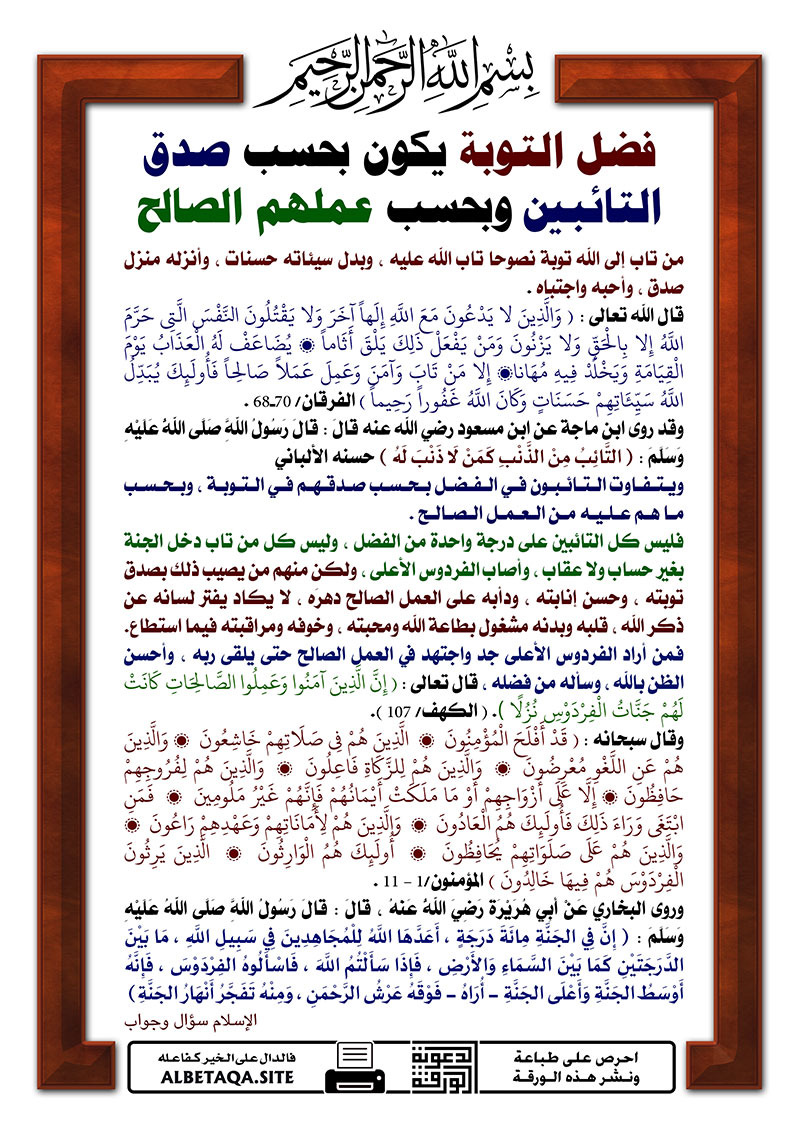 بِسْمِ اللَّهِ الرَّحْمَنِ الرَّحِيمِ
فضل التوبة يكون بحسب صدق
التائبين وبحسب عملهم الصالح
من تاب إلى الله توبة نصوحا تاب الله عليه ، وبدل سيئاته حسنات ، وأنزله منزل
صدق ، وأحبه واجتباه .
قال الله تعالى : ( وَالَّذِينَ لا يَدْعُونَ مَعَ اللَّهِ إِلَهاً آخَرَ وَلا يَقْتُلُونَ النَّفْسَ الَّتِي حَرَّمَ
اللَّهُ إِلا بِالْحَقِّ وَلا يَزْنُونَ وَمَنْ يَفْعَلْ ذَلِكَ يَلْقَ أَثَاماً ۞ يُضَاعَفْ لَهُ الْعَذَابُ يَوْمَ
الْقِيَامَةِ وَيَخْلُدْ فِيهِ مُهَانا۞ إِلا مَنْ تَابَ وَآمَنَ وَعَمِلَ عَمَلاً صَالِحاً فَأُولَئِكَ يُبَدِّلُ
اللَّهُ سَيِّئَاتِهِمْ حَسَنَاتٍ وَكَانَ اللَّهُ غَفُوراً رَحِيماً ) الفرقان/ 70ـ68 .
وقد روى ابن ماجة عن ابن مسعود رضي الله عنه قال : قالَ رَسُولُ اللهِ صَلَّى اللهُ عَلَيْهِ
وَسَلَّمَ : ( التَّائِبُ مِنْ الذَّنْبِ كَمَنْ لَا ذَنْبَ لَهُ ) حسنه الألباني
ويتفاوت التائبون في الفضل بحسب صدقهم في التوبة ، وبحسب
ما هم عليه من العمل الصالح .
فليس كل التائبين على درجة واحدة من الفضل ، وليس كل من تاب دخل الجنة
بغير حساب ولا عقاب ، وأصاب الفردوس الأعلى ، ولكن منهم من يصيب ذلك بصدق
توبته ، وحسن إنابته ، ودأبه على العمل الصالح دهرَه ، لا يكاد يفتر لسانه عن
ذكر الله ، قلبه وبدنه مشغول بطاعة الله ومحبته ، وخوفه ومراقبته فيما استطاع.
فمن أراد الفردوس الأعلى جد واجتهد في العمل الصالح حتى يلقى ربه ، وأحسن
الظن بالله ، وسأله من فضله ، قال تعالى : ( إِنَّ الَّذِينَ آمَنُوا وَعَمِلُوا الصَّالِحَاتِ كَانَتْ
لَهُمْ جَنَّاتُ الْفِرْدَوْسِ نُزُلًا ). ( الكهف/ 107 ).
وقال سبحانه : ( قَدْ أَفْلَحَ الْمُؤْمِنُونَ ۞ الَّذِينَ هُمْ فِي صَلَاتِهِمْ خَاشِعُونَ ۞ وَالَّذِينَ
هُمْ عَنِ اللَّغْوِ مُعْرِضُونَ ۞ وَالَّذِينَ هُمْ لِلزَّكَاةِ فَاعِلُونَ ۞ وَالَّذِينَ هُمْ لِفُرُوجِهِمْ
حَافِظُونَ ۞ إِلَّا عَلَى أَزْوَاجِهِمْ أَوْ مَا مَلَكَتْ أَيْمَانُهُمْ فَإِنَّهُمْ غَيْرُ مَلُومِينَ ۞ فَمَنِ
ابْتَغَى وَرَاءَ ذَلِكَ فَأُولَئِكَ هُمُ الْعَادُونَ ۞ وَالَّذِينَ هُمْ لِأَمَانَاتِهِمْ وَعَهْدِهِمْ رَاعُونَ ۞
وَالَّذِينَ هُمْ عَلَى صَلَوَاتِهِمْ يُحَافِظُونَ ۞ أُولَئِكَ هُمُ الْوَارِثُونَ ۞ الَّذِينَ يَرِثُونَ
الْفِرْدَوْسَ هُمْ فِيهَا خَالِدُونَ ) المؤمنون/1 – 11 .
وروى البخاري عَنْ أَبِي هُرَيْرَةَ رَضِيَ اللهُ عَنْهُ ، قَالَ : قَالَ رَسُولُ اللهِ صَلَّى اللهُ عَلَيْهِ
وَسَلَّمَ : ( إِنَّ فِي الجَنَّةِ مِائَةَ دَرَجَةٍ ، أَعَدَّهَا اللَّهُ لِلْمُجَاهِدِينَ فِي سَبِيلِ اللَّهِ ، مَا بَيْنَ
الدَّرَجَتَيْنِ كَمَا بَيْنَ السَّمَاءِ وَالأَرْضِ ، فَإِذَا سَأَلْتُمُ اللَّهَ ، فَاسْأَلُوهُ الفِرْدَوْسَ ، فَإِنَّهُ
أَوْسَطُ الجَنَّةِ وَأَعْلَى الجَنَّةِ – أُرَاهُ – فَوْقَهُ عَرْشُ الرَّحْمَنِ ، وَمِنْهُ تَفَجَّرُ أَنْهَارُ الجَنَّةِ )
الإسلام سؤال وجواب
احرص على طباعة
ونشر هذه الورقة
الورقة الدعوية
فالدال على الخير كفاعله
ALBETAQA.SITE